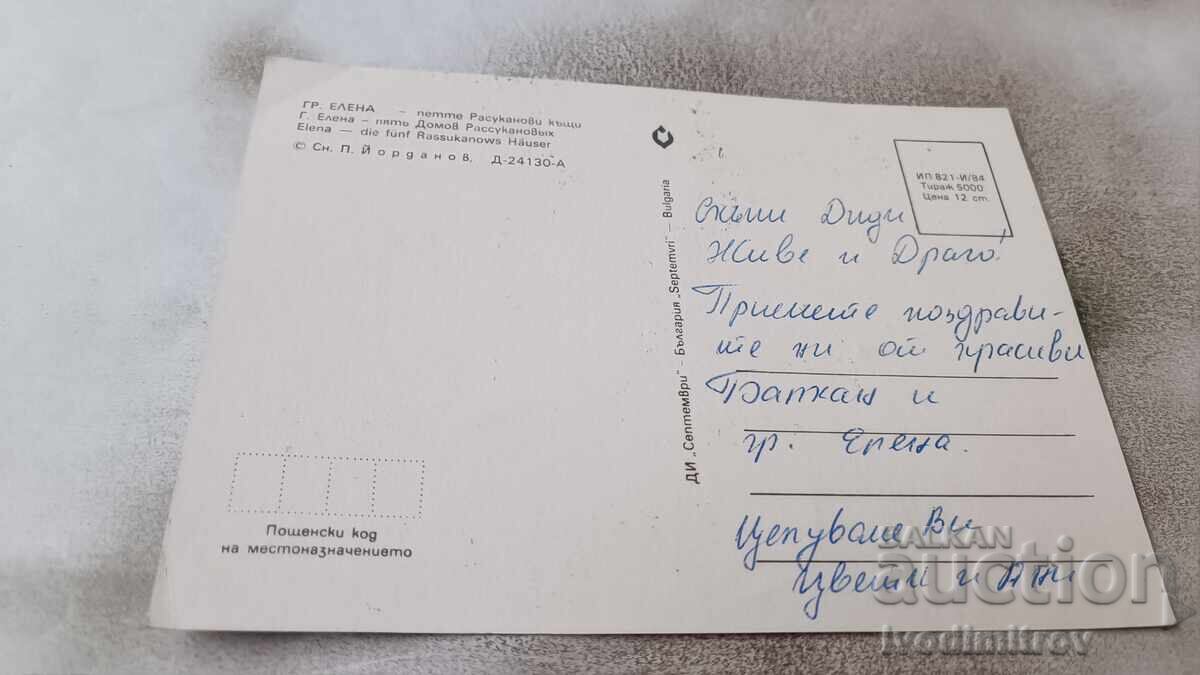 ГР. ЕЛЕНА — петте Расуканови къщи
Г. Елена – пять Домов Рассукановых
Elena — die fünf Rassukanows Häuser
© Сн. П. Йорданов, Д-24130-А
ДИ „Септември" - България „Septemvri" — Bulgaria
ИП 821-И/84
Тираж 5000
Цена 12 ст.
Скъпи Диди
Живе и Драго!
Приемете поздрави-
те ни от красиви
Балкан и
гр. Елена.
Целуваме Ви
Цвети и Ани
Пощенски код
на местоназначението
BALKAN
auction
ivodimitrev